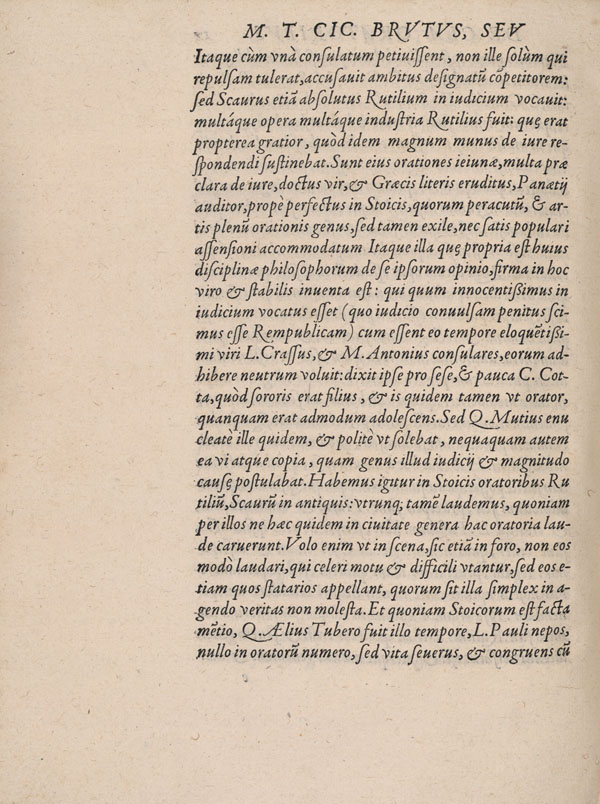 M. T. CIC. BRVTVS, SEV
Itaque cùm vnà consulatum petiuissent, non ille solùm qui
repulsam tulerat, accusauit ambitus designatũ cõpetitorem:
sed Scaurus etiã absolutus Rutilium in iudicium vocauit:
multáque opera multáque industria Rutilius fuit: quę erat
propterea gratior, quòd idem magnum munus de iure re-
spondendi sustinebat. Sunt eius orationes ieiunæ, multa præ
clara de iure, doctus vir, & Græcis literis eruditus, Panætij
auditor, propè perfectus in Stoicis, quorum peracutũ, & ar-
tis plenũ orationis genus, sed tamen exile, nec satis populari
assensioni accommodatum Itaque illa quę propria est huius
disciplinæ philosophorum de se ipsorum opinio, firma in hoc
viro & stabilis inuenta est: qui quum innocentißimus in
iudicium vocatus esset (quo iudicio conuulsam penitus sci-
mus esse Rempublicam) cum essent eo tempore eloquẽtißi-
mi viri L. Crassus, & M. Antonius consulares, eorum ad-
hibere neutrum voluit: dixit ipse pro sese, & pauca C. Cot-
ta, quòd sororis erat filius, & is quidem tamen vt orator,
quanquam erat admodum adolescens. Sed Q. Mutius enu
cleate ille quidem, & politè vt solebat, nequaquam autem
ea vi atque copia, quam genus illud iudicij & magnitudo
causę postulabat. Habemus igitur in Stoicis oratoribus Ru
tiliũ, Scaurũ in antiquis: vtrunq; tamẽ laudemus, quoniam
per illos ne hæc quidem in ciuitate genera hac oratoria lau-
de caruerunt. Volo enim vt in scena, sic etiã in foro, non eos
modò laudari, qui celeri motu & difficili vtantur, sed eos e-
tiam quos statarios appellant, quorum sit illa simplex in a-
gendo veritas non molesta. Et quoniam Stoicorum est facta
mẽtio, Q. Ælius Tubero fuit illo tempore, L. Pauli nepos,
nullo in oratorũ numero, sed vita seuerus, & congruens cũ